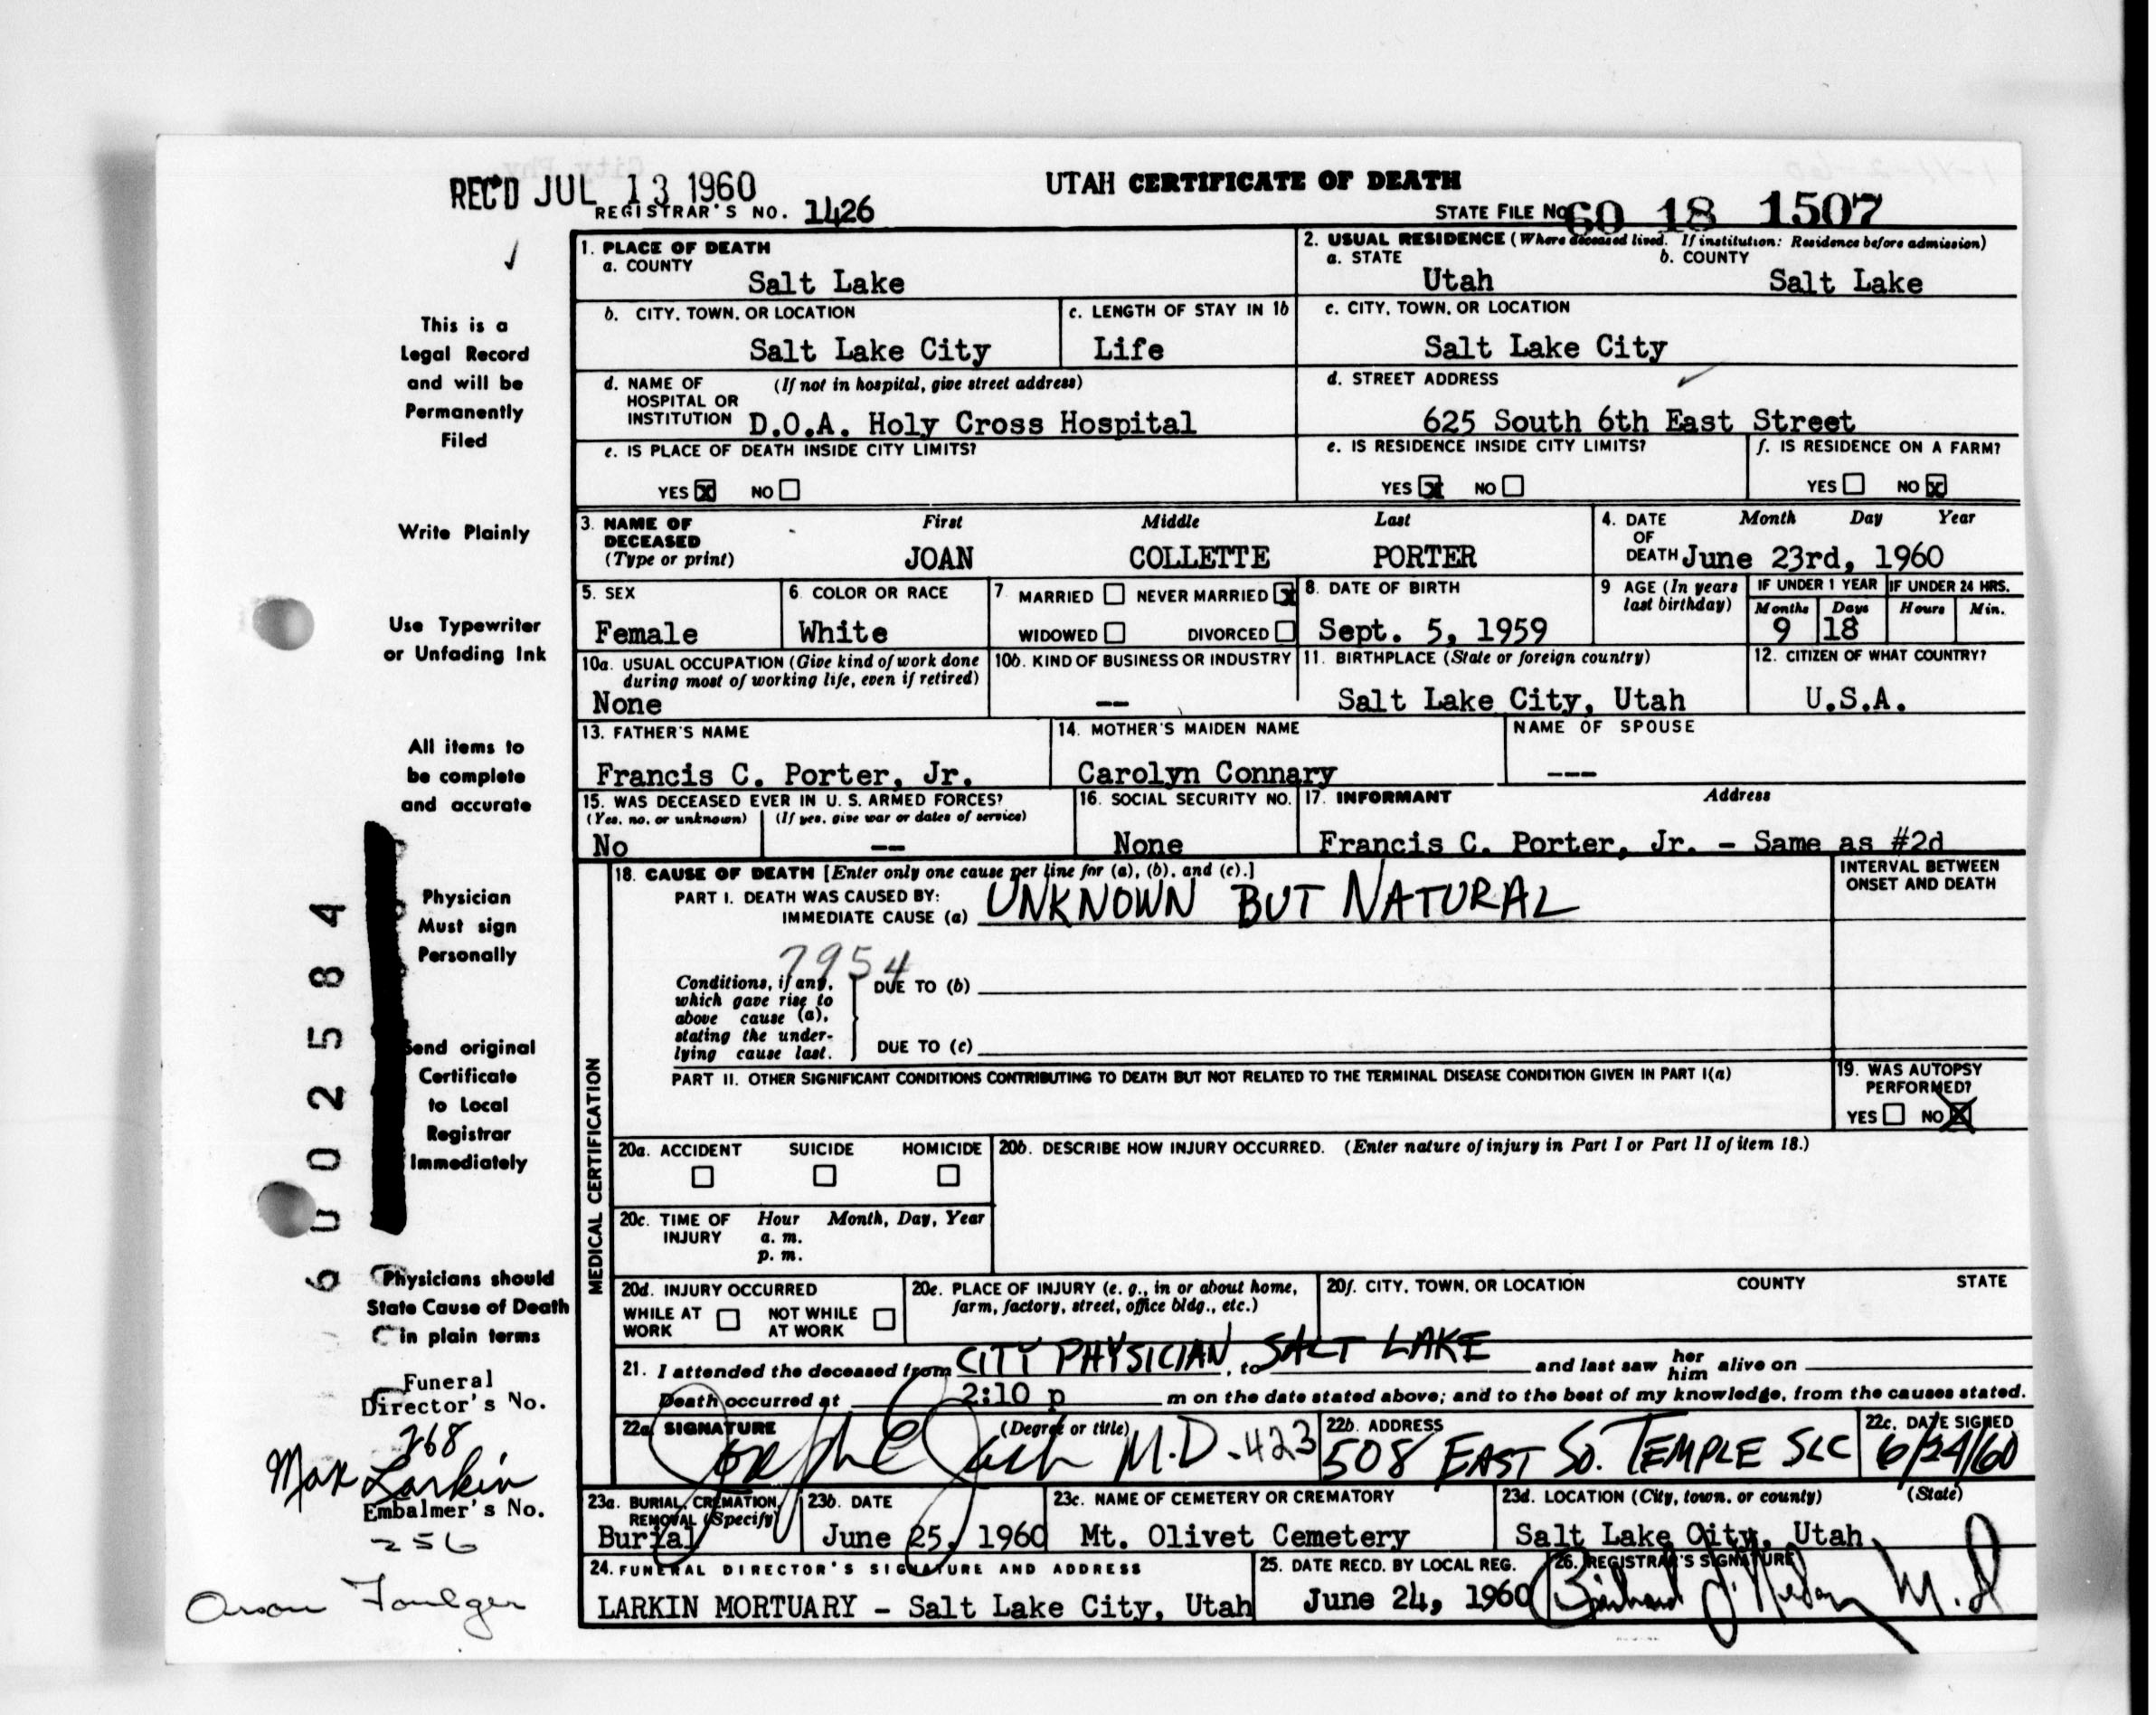 REC'D JUL 13 1960
UTAH CERTIFICATE OF DEATH
REGISTRAR'S NO. 1426
STATE FILE No. 60 18 1507
This is a
Legal Record
and will be
Permanently
Filed
Write Plainly
Use Typewriter
or Unfading Ink
All items to
be complete
and accurate
Physician
Must sign
Personally
Send original
Certificate
to Local
Registrar
Immediately
Physicians should
State Cause of Death
in plain terms
Funeral
Director's No.
268
Max Larkin
Embalmer's No.
256
Foulger
6002584
1. PLACE OF DEATH
a. COUNTY
Salt Lake
2. USUAL RESIDENCE (Where deceased lived. If institution: Residence before admission)
a. STATE b. COUNTY
Utah Salt Lake
b. CITY, TOWN, OR LOCATION
Salt Lake City
c. LENGTH OF STAY IN 1b
Life
c. CITY, TOWN, OR LOCATION
Salt Lake City
d. NAME OF (If not in hospital, give street address)
HOSPITAL OR
INSTITUTION D.O.A. Holy Cross Hospital
d. STREET ADDRESS
625 South 6th East Street
e. IS PLACE OF DEATH INSIDE CITY LIMITS?
YES X NO
e. IS RESIDENCE INSIDE CITY LIMITS?
YES X NO
f. IS RESIDENCE ON A FARM?
YES NO X
3. NAME OF DECEASED (Type or print)
First Middle Last
JOAN COLLETTE PORTER
4. DATE OF DEATH
Month Day Year
June 23rd, 1960
5. SEX
Female
6. COLOR OR RACE
White
7. MARRIED NEVER MARRIED X
WIDOWED DIVORCED
8. DATE OF BIRTH
Sept. 5, 1959
9 AGE (In years
last birthday)
IF UNDER 1 YEAR IF UNDER 24 HRS.
Months Days Hours Min.
9 18
10a. USUAL OCCUPATION (Give kind of work done
during most of working life, even if retired)
None
10b. KIND OF BUSINESS OR INDUSTRY
--
11. BIRTHPLACE (State or foreign country)
Salt Lake City, Utah
12. CITIZEN OF WHAT COUNTRY?
U.S.A.
13. FATHER'S NAME
Francis C. Porter, Jr.
14. MOTHER'S MAIDEN NAME
Carolyn Connary
NAME OF SPOUSE
---
15. WAS DECEASED EVER IN U. S. ARMED FORCES?
(Yes, no, or unknown) (If yes, give war or dates of service)
No --
16. SOCIAL SECURITY NO.
None
17. INFORMANT Address
Francis C. Porter, Jr. - Same as #2d
MEDICAL CERTIFICATION
18. CAUSE OF DEATH [Enter only one cause per line for (a), (b), and (c).]
PART I. DEATH WAS CAUSED BY:
IMMEDIATE CAUSE (a) UNKNOWN BUT NATURAL
INTERVAL BETWEEN
ONSET AND DEATH
7954
Conditions, if any,
which gave rise to
above cause (a),
stating the under-
lying cause last.
DUE TO (b)
DUE TO (c)
PART II. OTHER SIGNIFICANT CONDITIONS CONTRIBUTING TO DEATH BUT NOT RELATED TO THE TERMINAL DISEASE CONDITION GIVEN IN PART I(a)
19. WAS AUTOPSY
PERFORMED?
YES NO X
20a. ACCIDENT SUICIDE HOMICIDE
20b. DESCRIBE HOW INJURY OCCURRED. (Enter nature of injury in Part I or Part II of item 18.)
20c. TIME OF INJURY
Hour Month, Day, Year
a. m.
p. m.
20d. INJURY OCCURRED
WHILE AT WORK NOT WHILE AT WORK
20e. PLACE OF INJURY (e. g., in or about home,
farm, factory, street, office bldg., etc.)
20f. CITY, TOWN, OR LOCATION COUNTY STATE
21. I attended the deceased from CITY PHYSICIAN, to SALT LAKE and last saw her him alive on
Death occurred at 2:10 p m on the date stated above; and to the best of my knowledge, from the causes stated.
22a. SIGNATURE (Degree or title)
M.D-423
22b. ADDRESS
508 EAST SO. TEMPLE SLC
22c. DATE SIGNED
6/24/60
23a. BURIAL, CREMATION,
REMOVAL (Specify)
Burial
23b. DATE
June 25, 1960
23c. NAME OF CEMETERY OR CREMATORY
Mt. Olivet Cemetery
23d. LOCATION (City, town, or county) (State)
Salt Lake City, Utah
24. FUNERAL DIRECTOR'S SIGNATURE AND ADDRESS
LARKIN MORTUARY - Salt Lake City, Utah
25. DATE RECD. BY LOCAL REG.
June 24, 1960
26. REGISTRAR'S SIGNATURE
M.D